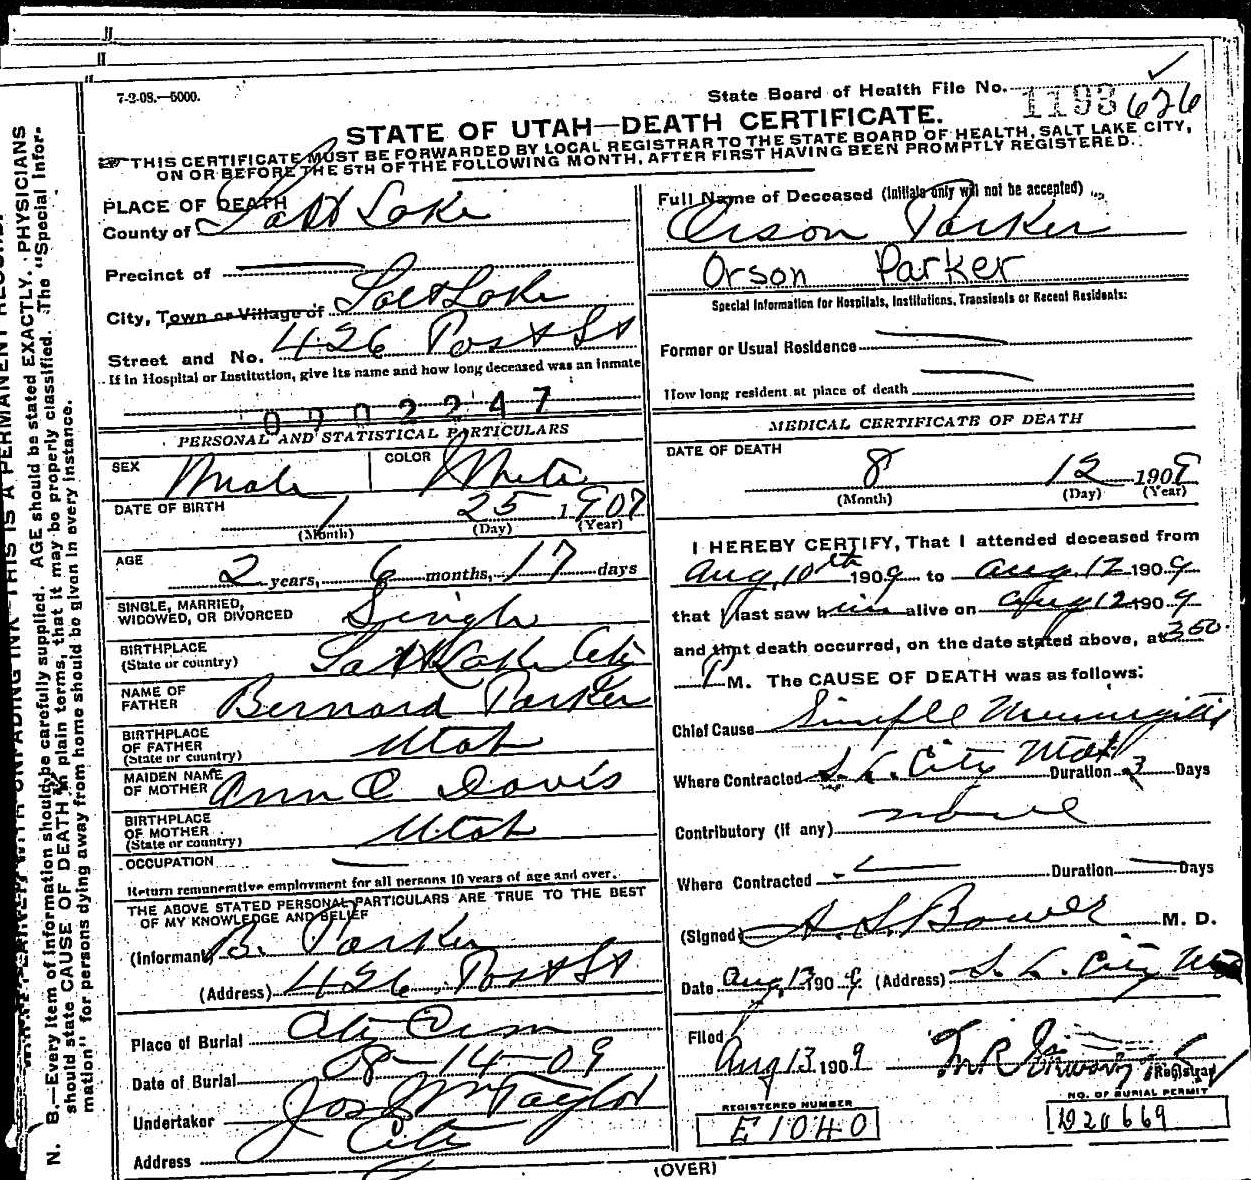 7-2-08.—5000.
State Board of Health File No. 1193 626
STATE OF UTAH—DEATH CERTIFICATE.
THIS CERTIFICATE MUST BE FORWARDED BY LOCAL REGISTRAR TO THE STATE BOARD OF HEALTH, SALT LAKE CITY,
ON OR BEFORE THE 5TH OF THE FOLLOWING MONTH, AFTER FIRST HAVING BEEN PROMPTLY REGISTERED.
PLACE OF DEATH
County of Salt Lake
Precinct of
City, Town or Village of Salt Lake
Street and No. 426 Post St
If in Hospital or Institution, give its name and how long deceased was an inmate
0702247
PERSONAL AND STATISTICAL PARTICULARS
SEX Male COLOR White
DATE OF BIRTH 1 25 1907
(Month) (Day) (Year)
AGE 2 years, 6 months, 17 days
SINGLE, MARRIED,
WIDOWED, OR DIVORCED Single
BIRTHPLACE
(State or country) Salt Lake City
NAME OF
FATHER Bernard Parker
BIRTHPLACE
OF FATHER
(State or country) Utah
MAIDEN NAME
OF MOTHER Ann C Davis
BIRTHPLACE
OF MOTHER
(State or country) Utah
OCCUPATION
Return remunerative employment for all persons 10 years of age and over.
THE ABOVE STATED PERSONAL PARTICULARS ARE TRUE TO THE BEST
OF MY KNOWLEDGE AND BELIEF
(Informant) B. Parker
(Address) 426 Post St
Place of Burial City Cem
Date of Burial 8-14-09
Undertaker Jos Wm Taylor
Address City
Full Name of Deceased (Initials only will not be accepted)
Orson Parker
Orson Parker
Special Information for Hospitals, Institutions, Transients or Recent Residents:
Former or Usual Residence
How long resident at place of death
MEDICAL CERTIFICATE OF DEATH
DATE OF DEATH
8 12 1909
(Month) (Day) (Year)
I HEREBY CERTIFY, That I attended deceased from
Aug 10th 1909 to Aug 12 1909
that I last saw him alive on Aug 12 1909
and that death occurred, on the date stated above, at 3 50
P M. The CAUSE OF DEATH was as follows:
Chief Cause Simple Meningitis
Where Contracted S. L. City Utah Duration 3 Days
Contributory (if any) none
Where Contracted Duration Days
(Signed) A. S. Bower M. D.
Date Aug 13 1909 (Address) S. L. City
Filed
Aug 13 1909
Registrar
REGISTERED NUMBER
E 1040
NO. OF BURIAL PERMIT
D20669
(OVER)
N. B.—Every item of information should be carefully supplied. AGE should be stated EXACTLY. PHYSICIANS
should state CAUSE OF DEATH in plain terms, that it may be properly classified. The "Special Infor-
mation" for persons dying away from home should be given in every instance.